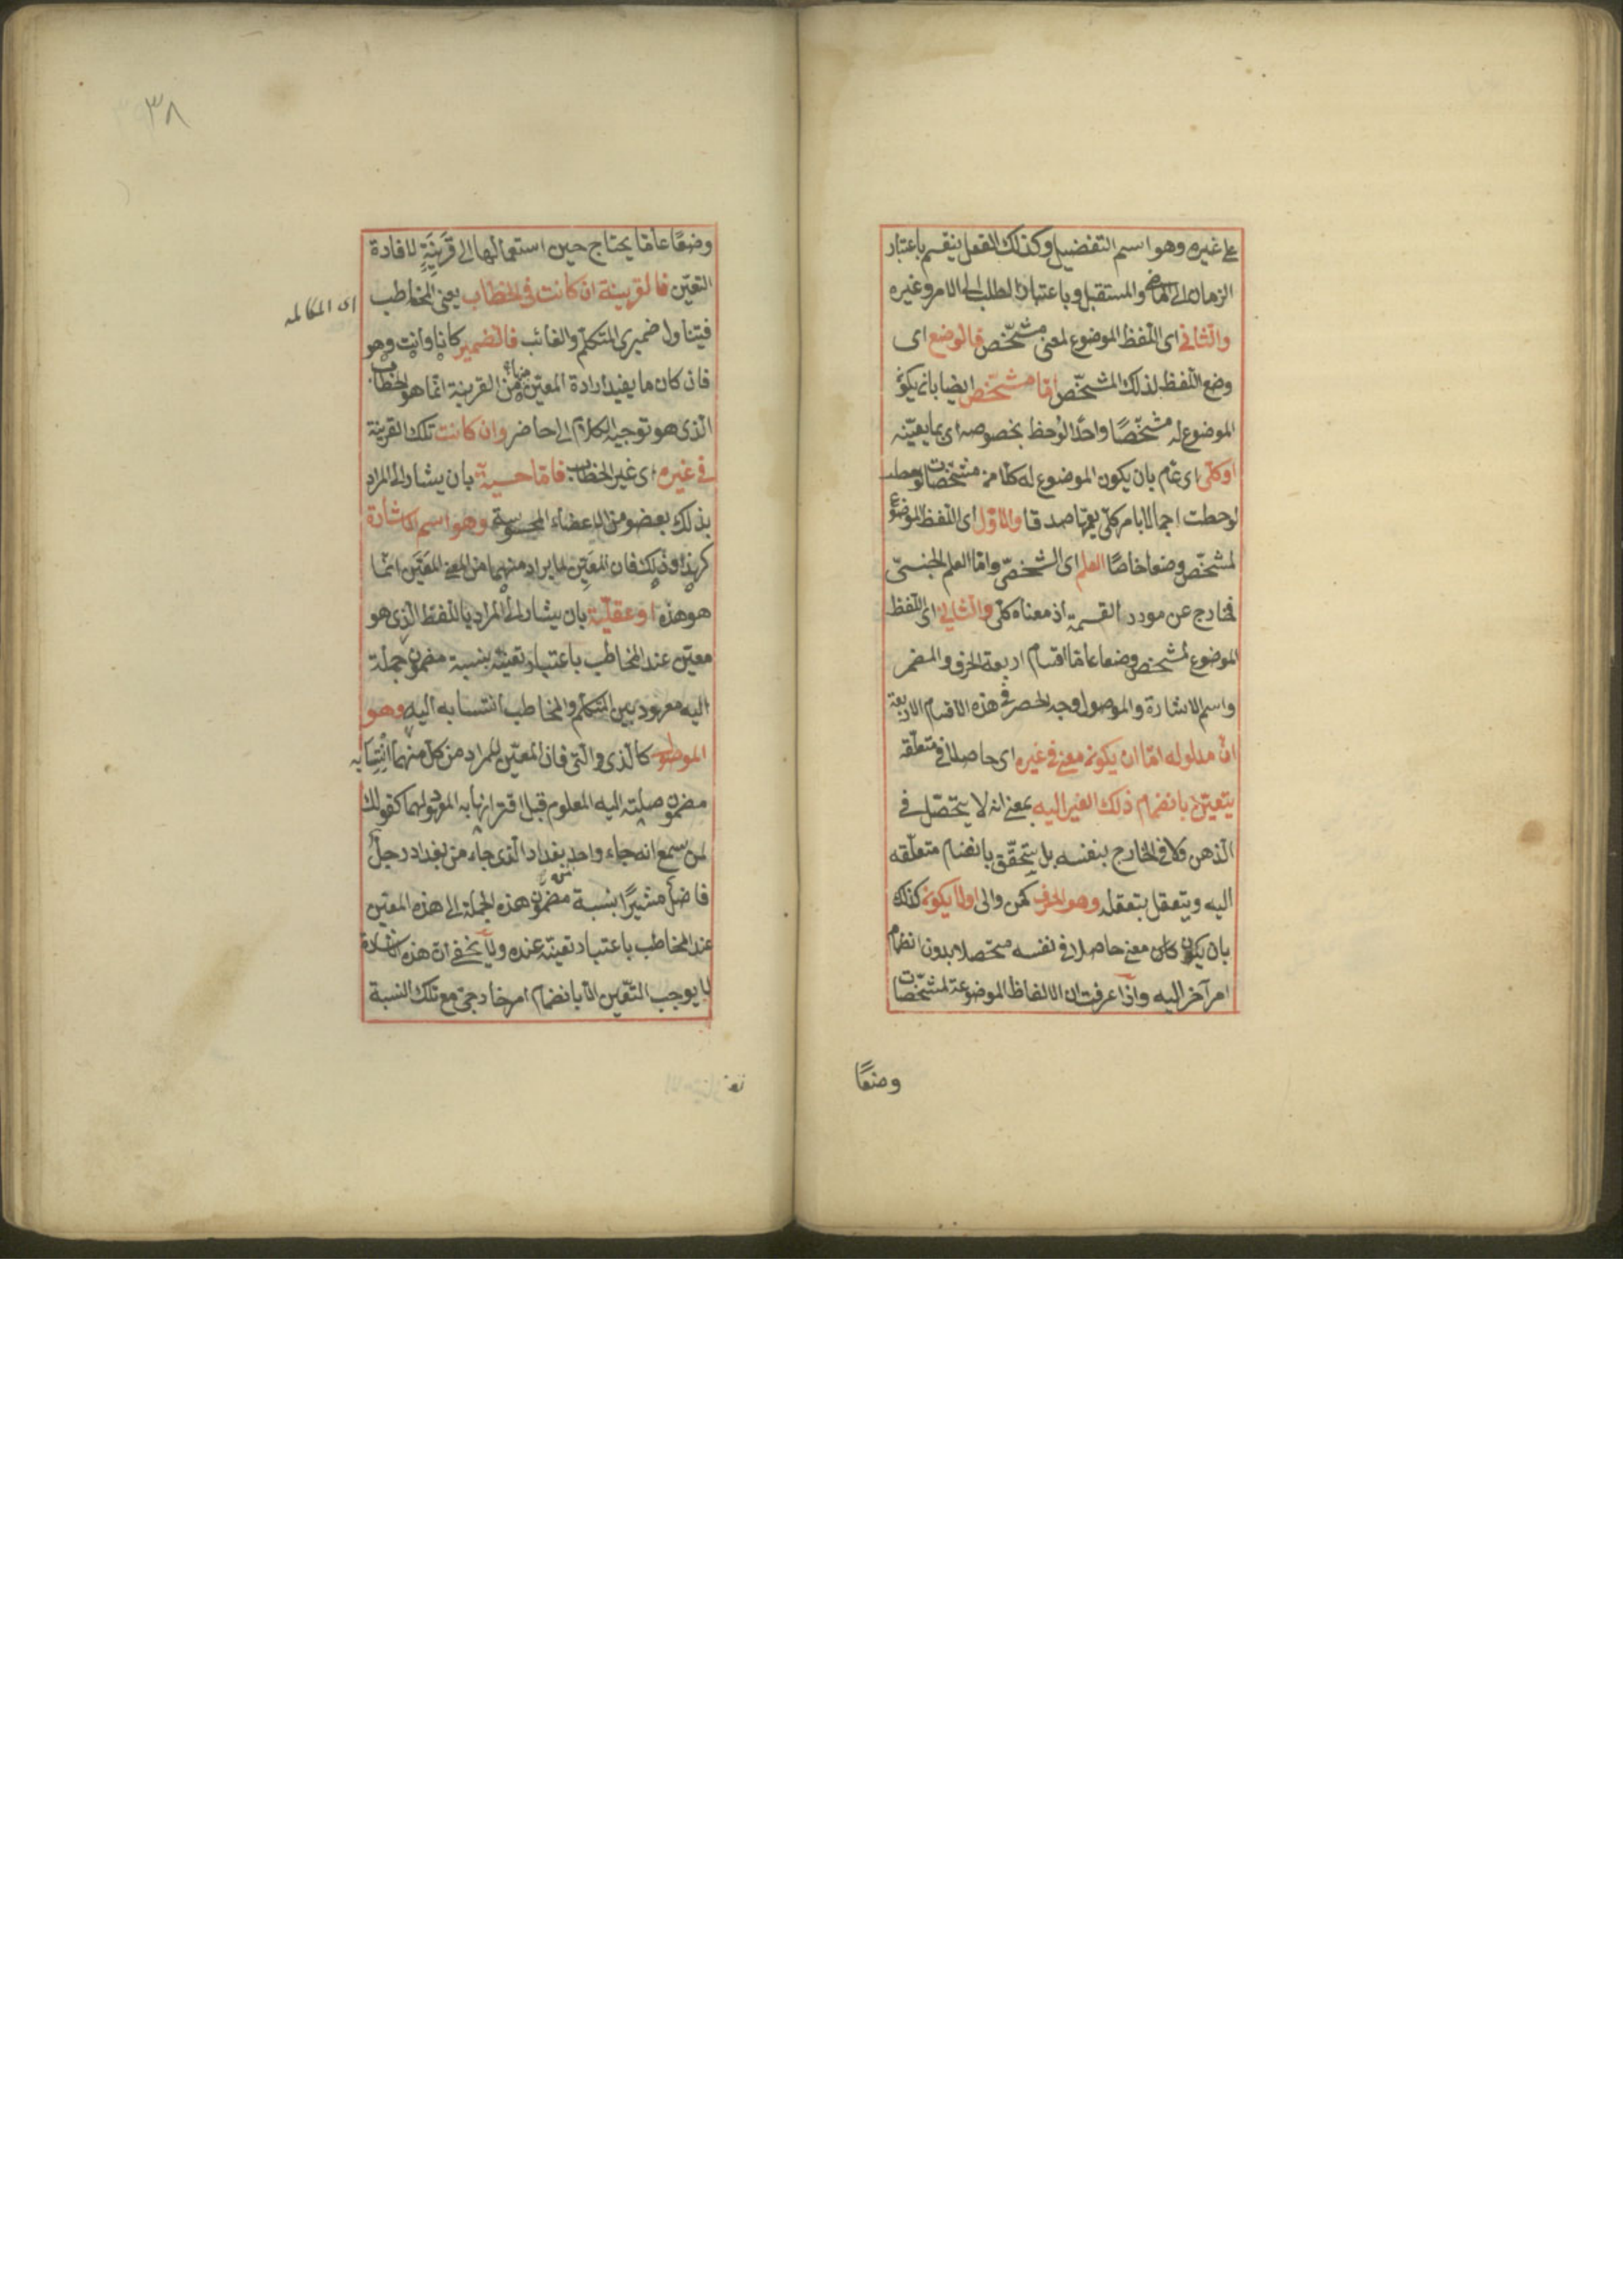 على غيره وهو اسم التفضيل وكذلك الفعل ينقسم باعتبار
الزمان الى الماضى والمستقبل وباعتبار الطلب الى الامر وغيره
والثانى اى اللفظ الموضوع لمعنى مشخّص فالوضع اى
وضع اللفظ لذلك المشخّص امّا مشخّص ايضا بان يكون
الموضوع له مشخّصًا واحدًا لوحظ بخصوصه اى بما يعيّنه
او كلّى اى عام بان يكون الموضوع له كلّا من مشخّصات
لوحظت اجمالا بامر كلّى يعمّها صدقا والاوّل اى اللفظ الموضوع
لمشخّص وضعا خاصّا العلم اى الشخصّى وامّا العلم الجنسىّ
فخارج عن مورد القسمة اذ معناه كلّى والثانى اى اللفظ
الموضوع لمشخص وضعا عامّا اقسام اربعة الحرف والمضمر
واسم الاشارة والموصول وجه الحصر فى هذه الاقسام الاربعة
انّ مدلوله امّا ان يكون معنى فى غيره اى حاصلا فى متعلّقه
يتعيّن بانضمام ذلك الغير اليه بمعنى انه لا يتحصّل فى
الذهن ولا فى الخارج بنفسه بل يتحقّق بانضمام متعلّقه
اليه ويتعقل بتعقله وهو الحرف كمن والى اولا يكون كذلك
بان يكون كان معنى حاصلا فى نفسه متحصلا بدون انضمام
امر آخر اليه واذا عرفت ان الالفاظ الموضوعة لمشخّصات
وضعًا
٣٨
وضعًا عامّا يحتاج حين استعمالها الى قَرِينَةٍ لافادة
التعيّن فالقرينة ان كانت فى الخطاب يعنى المخاطب
اى المكالمه
فيتناول ضميرى المتكلّم والغائب فالضمير كانا وانت وهو
فان كان ما يفيد ارادة المعيّن منها من القرينة انّما هو الخطاب
الّذى هو توجيه الكلام الى حاضر وان كانت تلك القرينة
فى غيره اى غير الخطاب فامّا حسيّة بان يشار الى المراد
بذلك بعضو من الاعضاء المحسوسة وهو اسم الاشارة
كهذا وذلك فان المعَيِّن لما يراد منهما من المعنى المعَيَّن انّما
هو هذه او عقليّة بان يشار الى المراد باللفظ الذى هو
معيّن عند المخاطب باعتبار تعينّه بنسبة مضمون جملة
اليه معهود بين المتكلّم والمخاطب انتسابه اليه وهو
الموصول كالذى والّتى فان المعيّن للمراد من كلّ منهما انتِسابه
مضمون صلته اليه المعلوم قبل اقترانها به المراد لهما كقولك
لمن سمع انه جاء واحد بغداد الّذى جاء من بغداد رجلٌ
فاضلٌ مشيرًا بنسبة مضمون هذه الجملة الى هذه المعيّن
عند المخاطب باعتبار تعينّه عنده ولا يخفى ان هذه الاشارة
لا يوجب التعّين الا بانضمام امر خارجىّ مع تلك النسبة